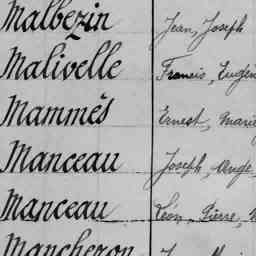 Malbezin Jean, Joseph
Malivelle Francis, Eugène
Mammès Ernest, Marie
Manceau Joseph, Ange
Manceau Léon, Pierre,
Mancheron